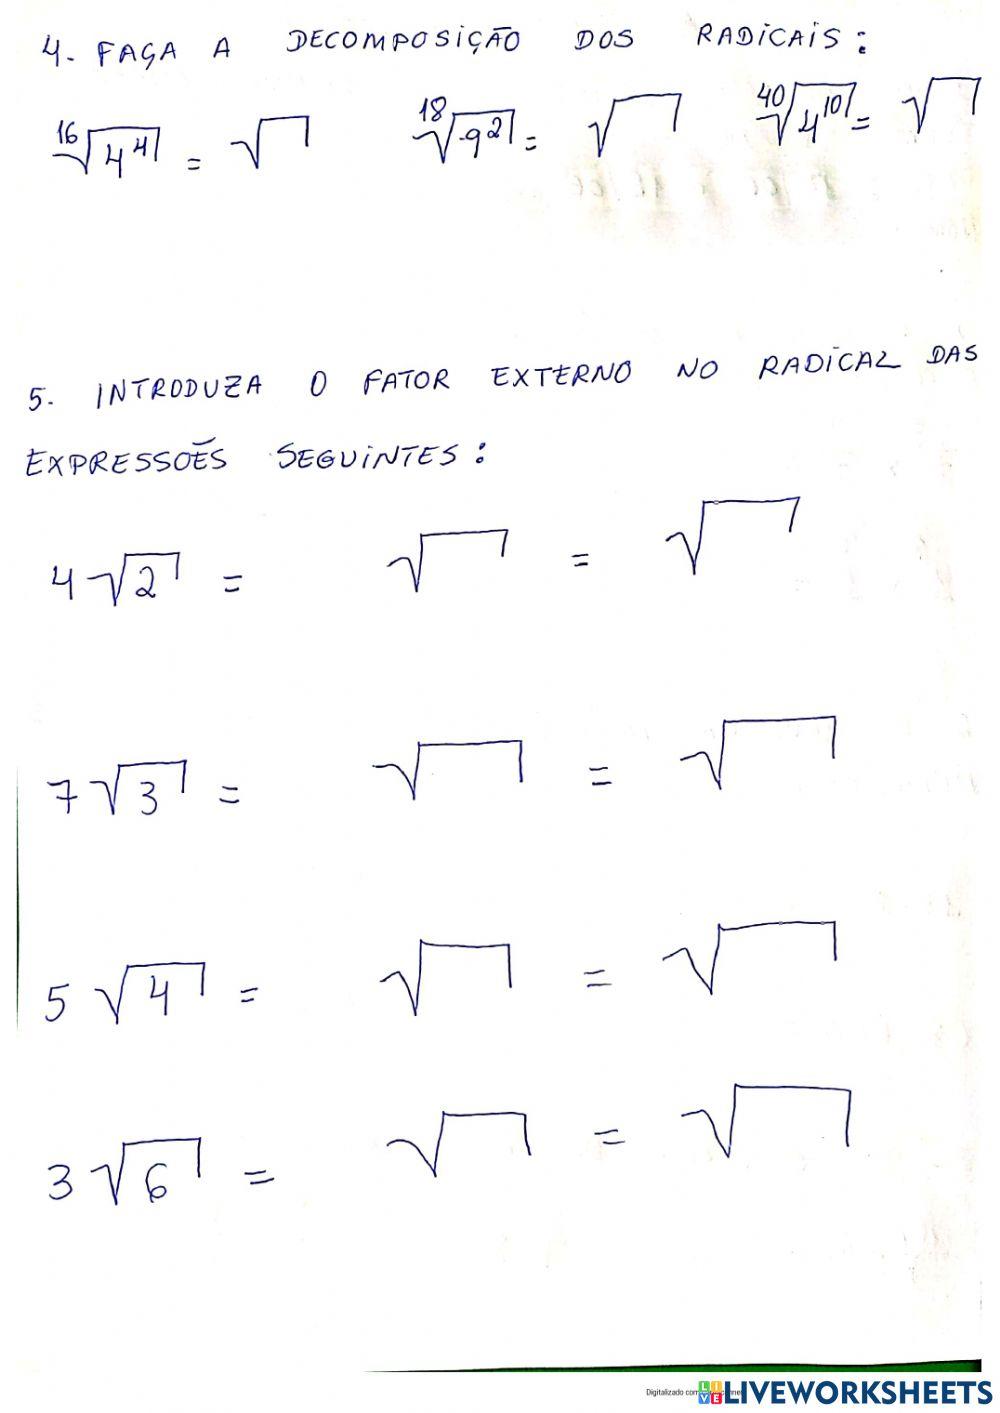 4. FAÇA A DECOMPOSIÇÃO DOS RADICAIS:
¹⁶√4⁴ = √ ¹⁸√9² = √ ⁴⁰√4¹⁰ = √
5. INTRODUZA O FATOR EXTERNO NO RADICAL DAS
EXPRESSÕES SEGUINTES:
4√2 = √ = √
7√3 = √ = √
5√4 = √ = √
3√6 = √ = √
Digitalizado com
LIVEWORKSHEETS